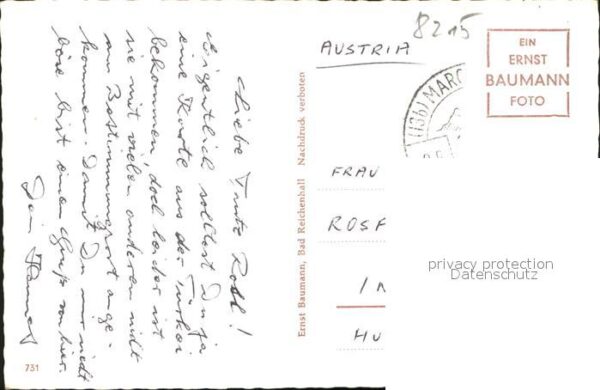 Liebe Tante Rosl!
Eigentlich solltest Du ja
eine Karte aus der Türkei
bekommen, doch leider ist
sie mit vielen anderen nicht
am Bestimmungsort ange-
kommen. Damit Du mir nicht
böse bist einen Gruß von hier.
Dein
731
Ernst Baumann, Bad Reichenhall Nachdruck verboten
8215
AUSTRIA
(136) MARQ
EIN
ERNST
BAUMANN
FOTO
FRAU
ROSF
IN
HU
privacy protection
Datenschutz